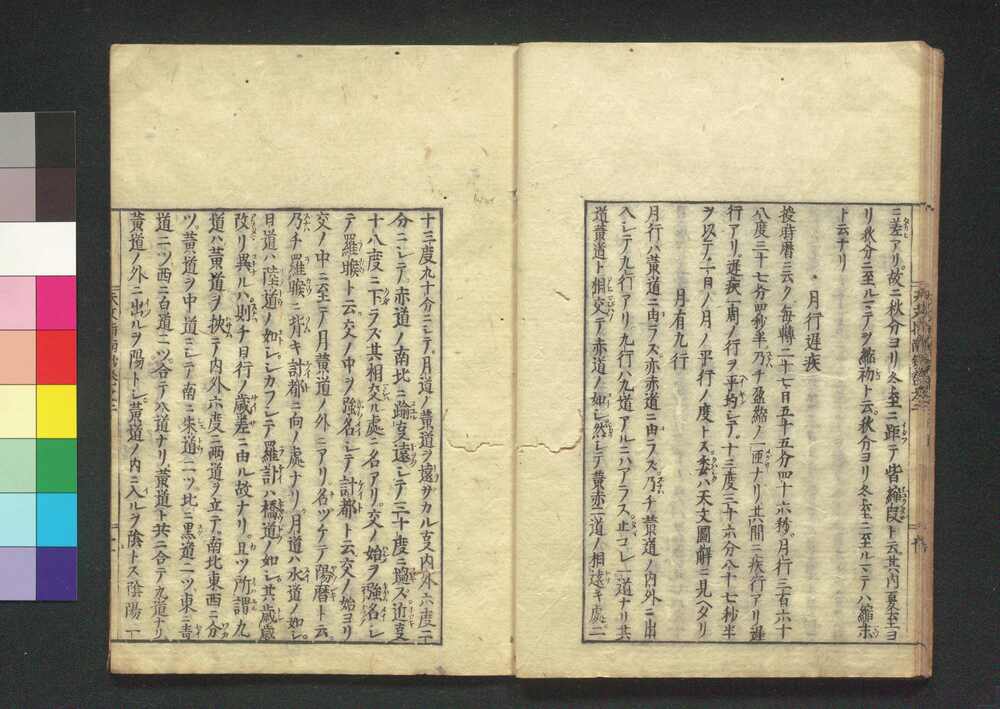 ニ差アリ故ニ秋分ヨリ冬至ニ距テ皆縮段ト云其内夏至ヨ
リ秋分ニ至ルマテヲ縮初ト云秋分ヨリ冬至ニ至ルマテハ縮末
ト云ナリ
月行遲疾
授時暦ニ云ク毎轉二十七日五十五分四十六秒月行三百六十
八度三十七分四秒半乃チ盈縮ノ一匝ナリ其間ニ疾行アリ遲
行アリ遲疾一周ノ行ヲ平均シテ十三度三十六分八十七秒半
ヲ以テ一日ノ月ノ平行ノ度トス委ハ天文圖解ニ見ヘタリ
月有九行
月行ハ黄道ニ由ラス亦赤道ニ由ラス乃チ黄道ノ内外ニ出
入シテ九行アリ九行ハ九道アルニハアラス止コレ一道ナリ其
道黄道ト相交テ赤道ノ如シ然シテ黄赤二道ノ相遠キ處二
十三度九十分ニシテ月道ノ黄道ヲ遠サカル支内外六度ニ十
分ニシテ赤道ノ南北ニ踰支遠シテ三十度ニ過ス近支
十八度ニ下ラス其相交ル處ニ名アリ交ノ始ヲ強名シ
テ羅睺ト云交ノ中ヲ強名シテ計都ト云交ノ始ヨリ
交ノ中ニ至テノ月黄道ノ外ニアリ名ツケテ陽暦ト云
乃チ羅睺ニ背キ計都ニ向ノ處ナリ月道ハ水道ノ如シ
日道ハ陸道ノ如シシカフシテ羅計ハ橋道ノ如シ其歳歳
改リ異ルハ則チ日行ノ歳差ニ由ル故ナリ且ツ所謂九
道ハ黄道ヲ挾テ内外六度ニ両道ヲ立テ南北東西ニ分
ツ黄道ヲ中道ニシテ南ニ朱道二ツ北ニ黒道二ツ東ニ青
道二ツ西ニ白道二ツ合テ八道ナリ黄道ト共ニ合テ九道ナリ
黄道ノ外ニ出ルヲ陽トシ黄道ノ内ニ入ルヲ陰トス陰陽一